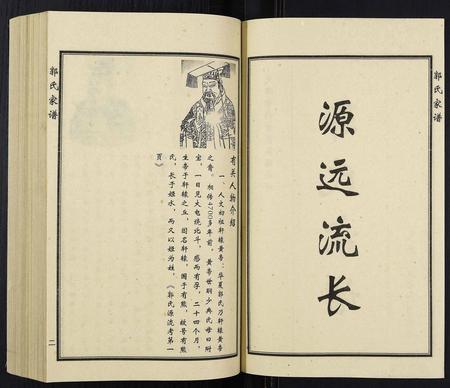 郭氏家谱
源远流长
郭氏家谱
有关人物介绍
一、人文初祖轩辕黄帝：华夏郭氏乃轩辕黄帝
之裔。相传4700多年前，黄帝世明少典氏母曰附
宝，一日见大电绕北斗，感而有孕，二十四个月，
生帝于轩辕之丘，因名轩辕，国于有熊，故号有熊
氏，长于姬水，而又以姬为姓，《郭氏源流考第一
页》
二